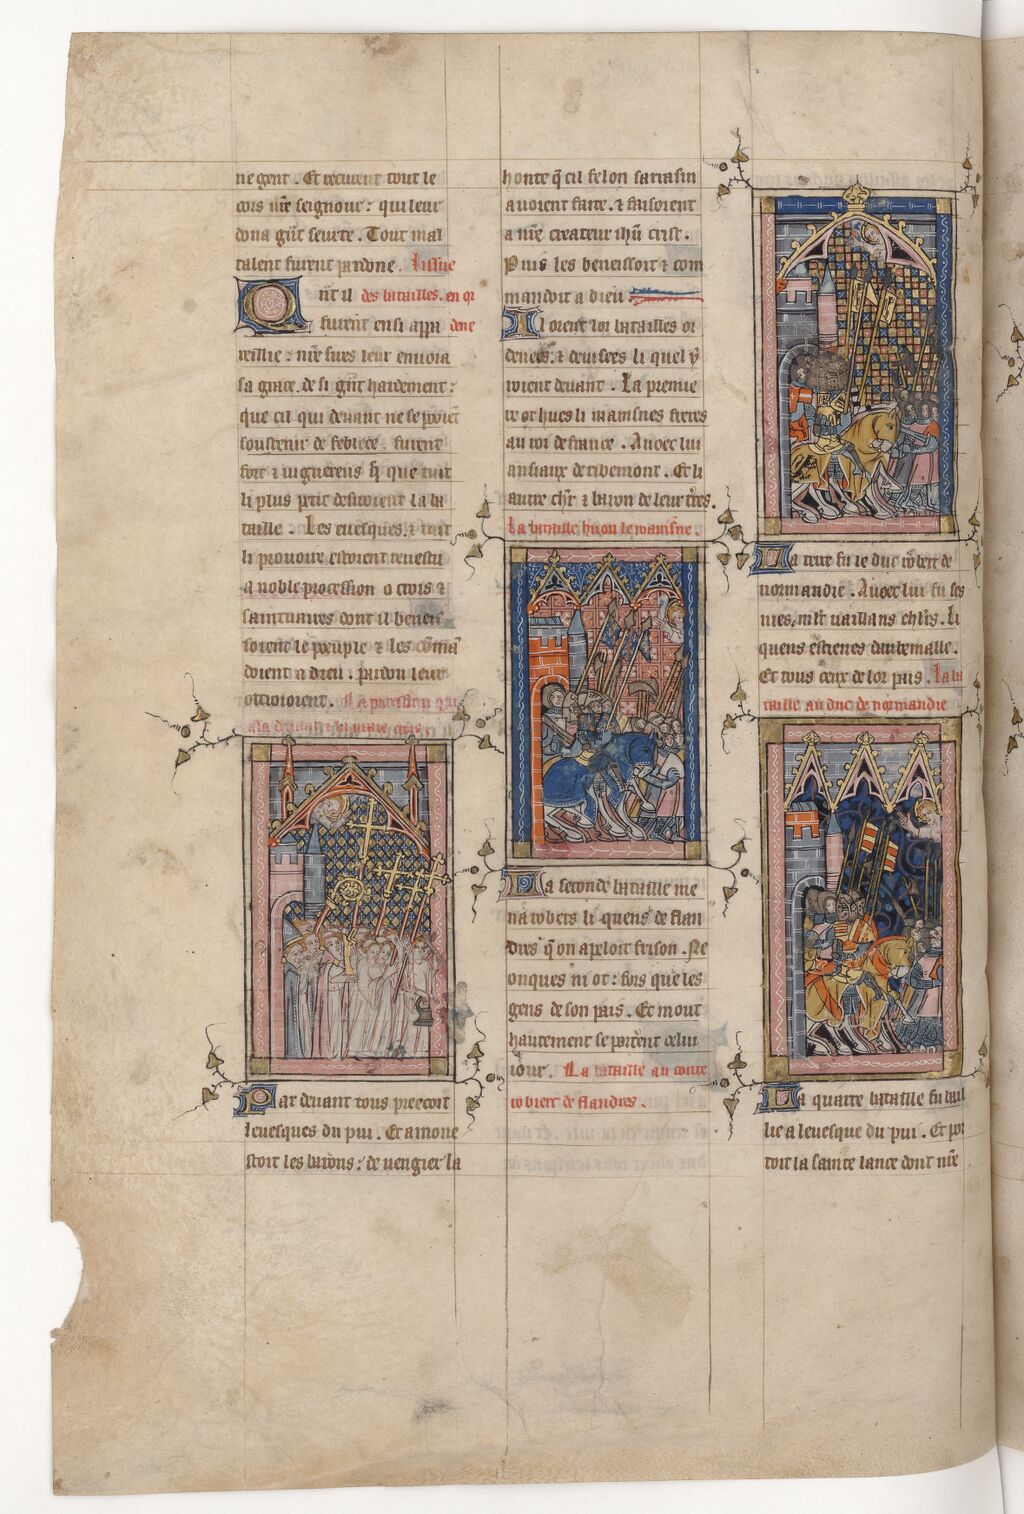 ne gent . Et reciurent tout le
cors nr̃e seignour : qui leur
dona gñt seurte . Tout mal
talent furent pardone . Lissue
Qnt il des batailles . en or
furent ensi appa dene
reillie : nr̃e sires leur enuoia
sa grace . de si gñt hardement :
que cil qui deuant ne se pooiẽt
soustenir de feblece . furent
fort & uiguereus si que tuit
li plus petit desiroient la ba
taille . Les euesques . & tuit
li prouoire estoient reuestu
a noble procession o crois &
saintuaires dont il beneis
soient le pueple & les cõma
doient a dieu : pardon leur
ottroioient .
Par deuant tous preecoit
leuesques du pui . Et amone
stoit les barons : de uengier la
honte q̃ cil felon sarrasin
auoient faite . & faisoient
a nr̃e createur ihũ crist .
Puis les beneissoit & com
mandoit a dieu
Il orent lor batailles or
denees . & deuisees li quel y
roient deuant . La premie
re ot hues li mainsnes freres
au roi de france . Auoec lui
ansiaux de ribemont . Et li
autre chr̃ & baron de leur t̃res .
La bataille huon le mainsne .
La seconde bataille me
na robers li quens de flan
dres q̃ on apeloit frison . Ne
onques ni ot : fors que les
gens de son pais . Et mout
hautement se portẽt celui
iour . La bataille au conte
robiert de flandres .
La tierce fu le duc robert de
normandie . Auoec lui fu ses
nies, ml̃t uaillans chl̃rs . li
quens estienes daubemalle .
Et tous ceux de lor pais . La ba
taille au duc de normandie
La quarte bataille fu bail
lie a leuesque du pui . Et por
toit la sainte lance dont nr̃e